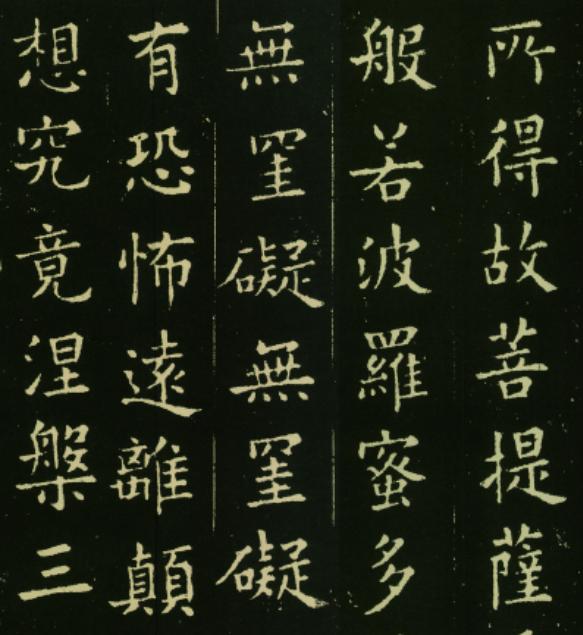 所得故菩提薩
般若波羅蜜多
無罣礙無罣礙
有恐怖遠離顛
想究竟涅槃三